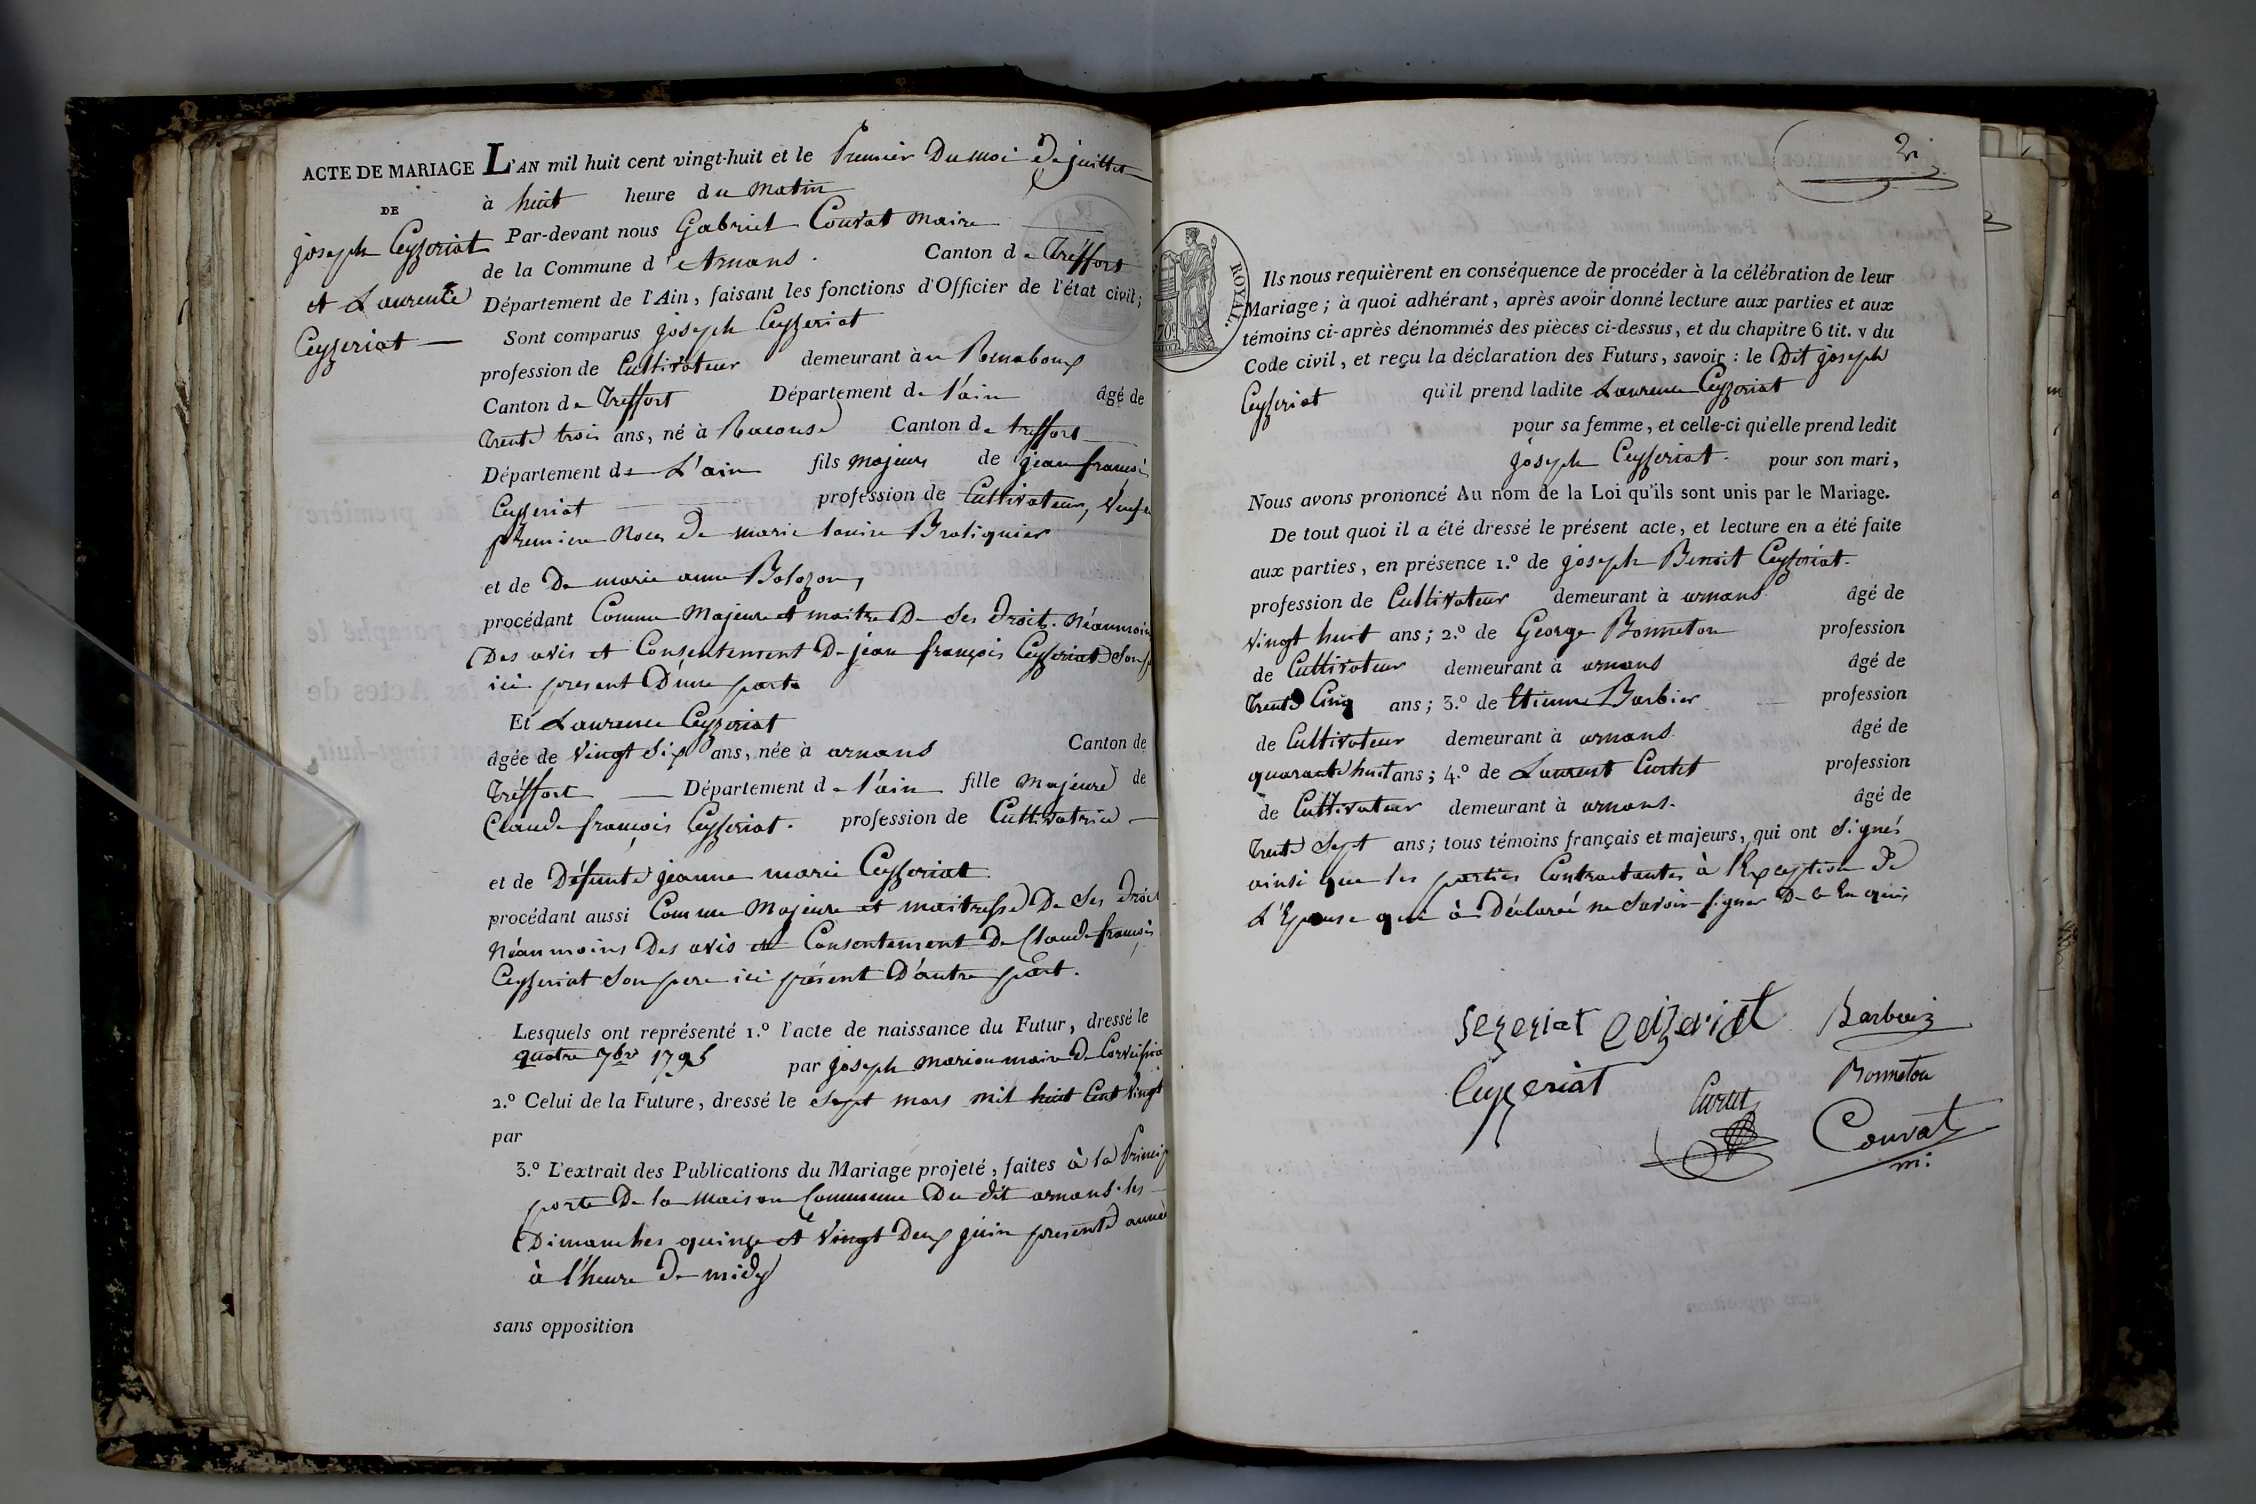 ACTE DE MARIAGE
DE
joseph Ceyzeriat
et Laurence
Ceyzeriat —
L'AN mil huit cent vingt-huit et le Premier Du moi De juillet
à huit heure du matin
Par-devant nous Gabriel Couvat maire
de la Commune d'Arnans. Canton de Tréffort
Département de l'Ain, faisant les fonctions d'Officier de l'état civil;
Sont comparus joseph Ceyzeriat
profession de Cultivateur demeurant à
Canton de Treffort Département de l'ain âgé de
Trente trois ans, né à Racouse Canton de treffort
Département de L'ain fils majeur de jean françois
Ceyzeriat profession de Cultivateur, Veuf
premiere Noces De marie Brotiquier
et de De marie anne Bolozon,
procédant Comme Majeur et maitre De Ses Droits. Néanmoins
Des avis et Consentement De jean françois Ceyzeriat Son
ici present D'une part
Et Laurence Ceyzeriat
âgée de Vingt Six ans, née à arnans Canton de
Tréffort Département de l'ain fille Majeure de
Claude françois Ceyzeriat. profession de Cultivatrice
et de Défunte jeanne marie Ceyzeriat
procédant aussi Comme Majeure et maitresse De Ses Droit
Néanmoins Des avis et Consentement De Claude françois
Ceyzeriat Son pere ici présent D'autre part.
Lesquels ont représenté 1.º l'acte de naissance du Futur, dressé le
quatre 7bre 1795 par joseph Marion maire De
2.º Celui de la Future, dressé le Sept mars mil huit Cent Vingt
par
3.º L'extrait des Publications du Mariage projeté, faites à la Princip
porte De la Maison Commune Du dit arnans les
Dimanches quinze et Vingt Deux juin presente année
à l'heure De midy
sans opposition
2
ROYAL.
70c
Ils nous requièrent en conséquence de procéder à la célébration de leur
Mariage; à quoi adhérant, après avoir donné lecture aux parties et aux
témoins ci-après dénommés des pièces ci-dessus, et du chapitre 6 tit. v du
Code civil, et reçu la déclaration des Futurs, savoir : le Dit joseph
Ceyzeriat qu'il prend ladite Laurence Ceyzeriat
pour sa femme, et celle-ci qu'elle prend ledit
joseph Ceyzeriat. pour son mari,
Nous avons prononcé Au nom de la Loi qu'ils sont unis par le Mariage.
De tout quoi il a été dressé le présent acte, et lecture en a été faite
aux parties, en présence 1.º de joseph Benoit Ceyzeriat.
profession de Cultivateur demeurant à arnans âgé de
Vingt huit ans; 2.º de George Bonneton profession
de Cultivateur demeurant à arnans âgé de
Trente Cinq ans; 3.º de Etienne Barbier profession
de Cultivateur demeurant à arnans âgé de
quarante huit ans; 4.º de Laurent Curtet profession
de Cultivateur demeurant à arnans. âgé de
Trente Sept ans; tous témoins français et majeurs, qui ont Signés
ainsi que les parties Contractantes à l'Exception De
L'Epouse qui à Déclaré ne Savoir Signer De ce Enquis
Sezeriat Ceizeriat Barbier
Ceyzeriat Curtet Bonneton
Couvat
m: